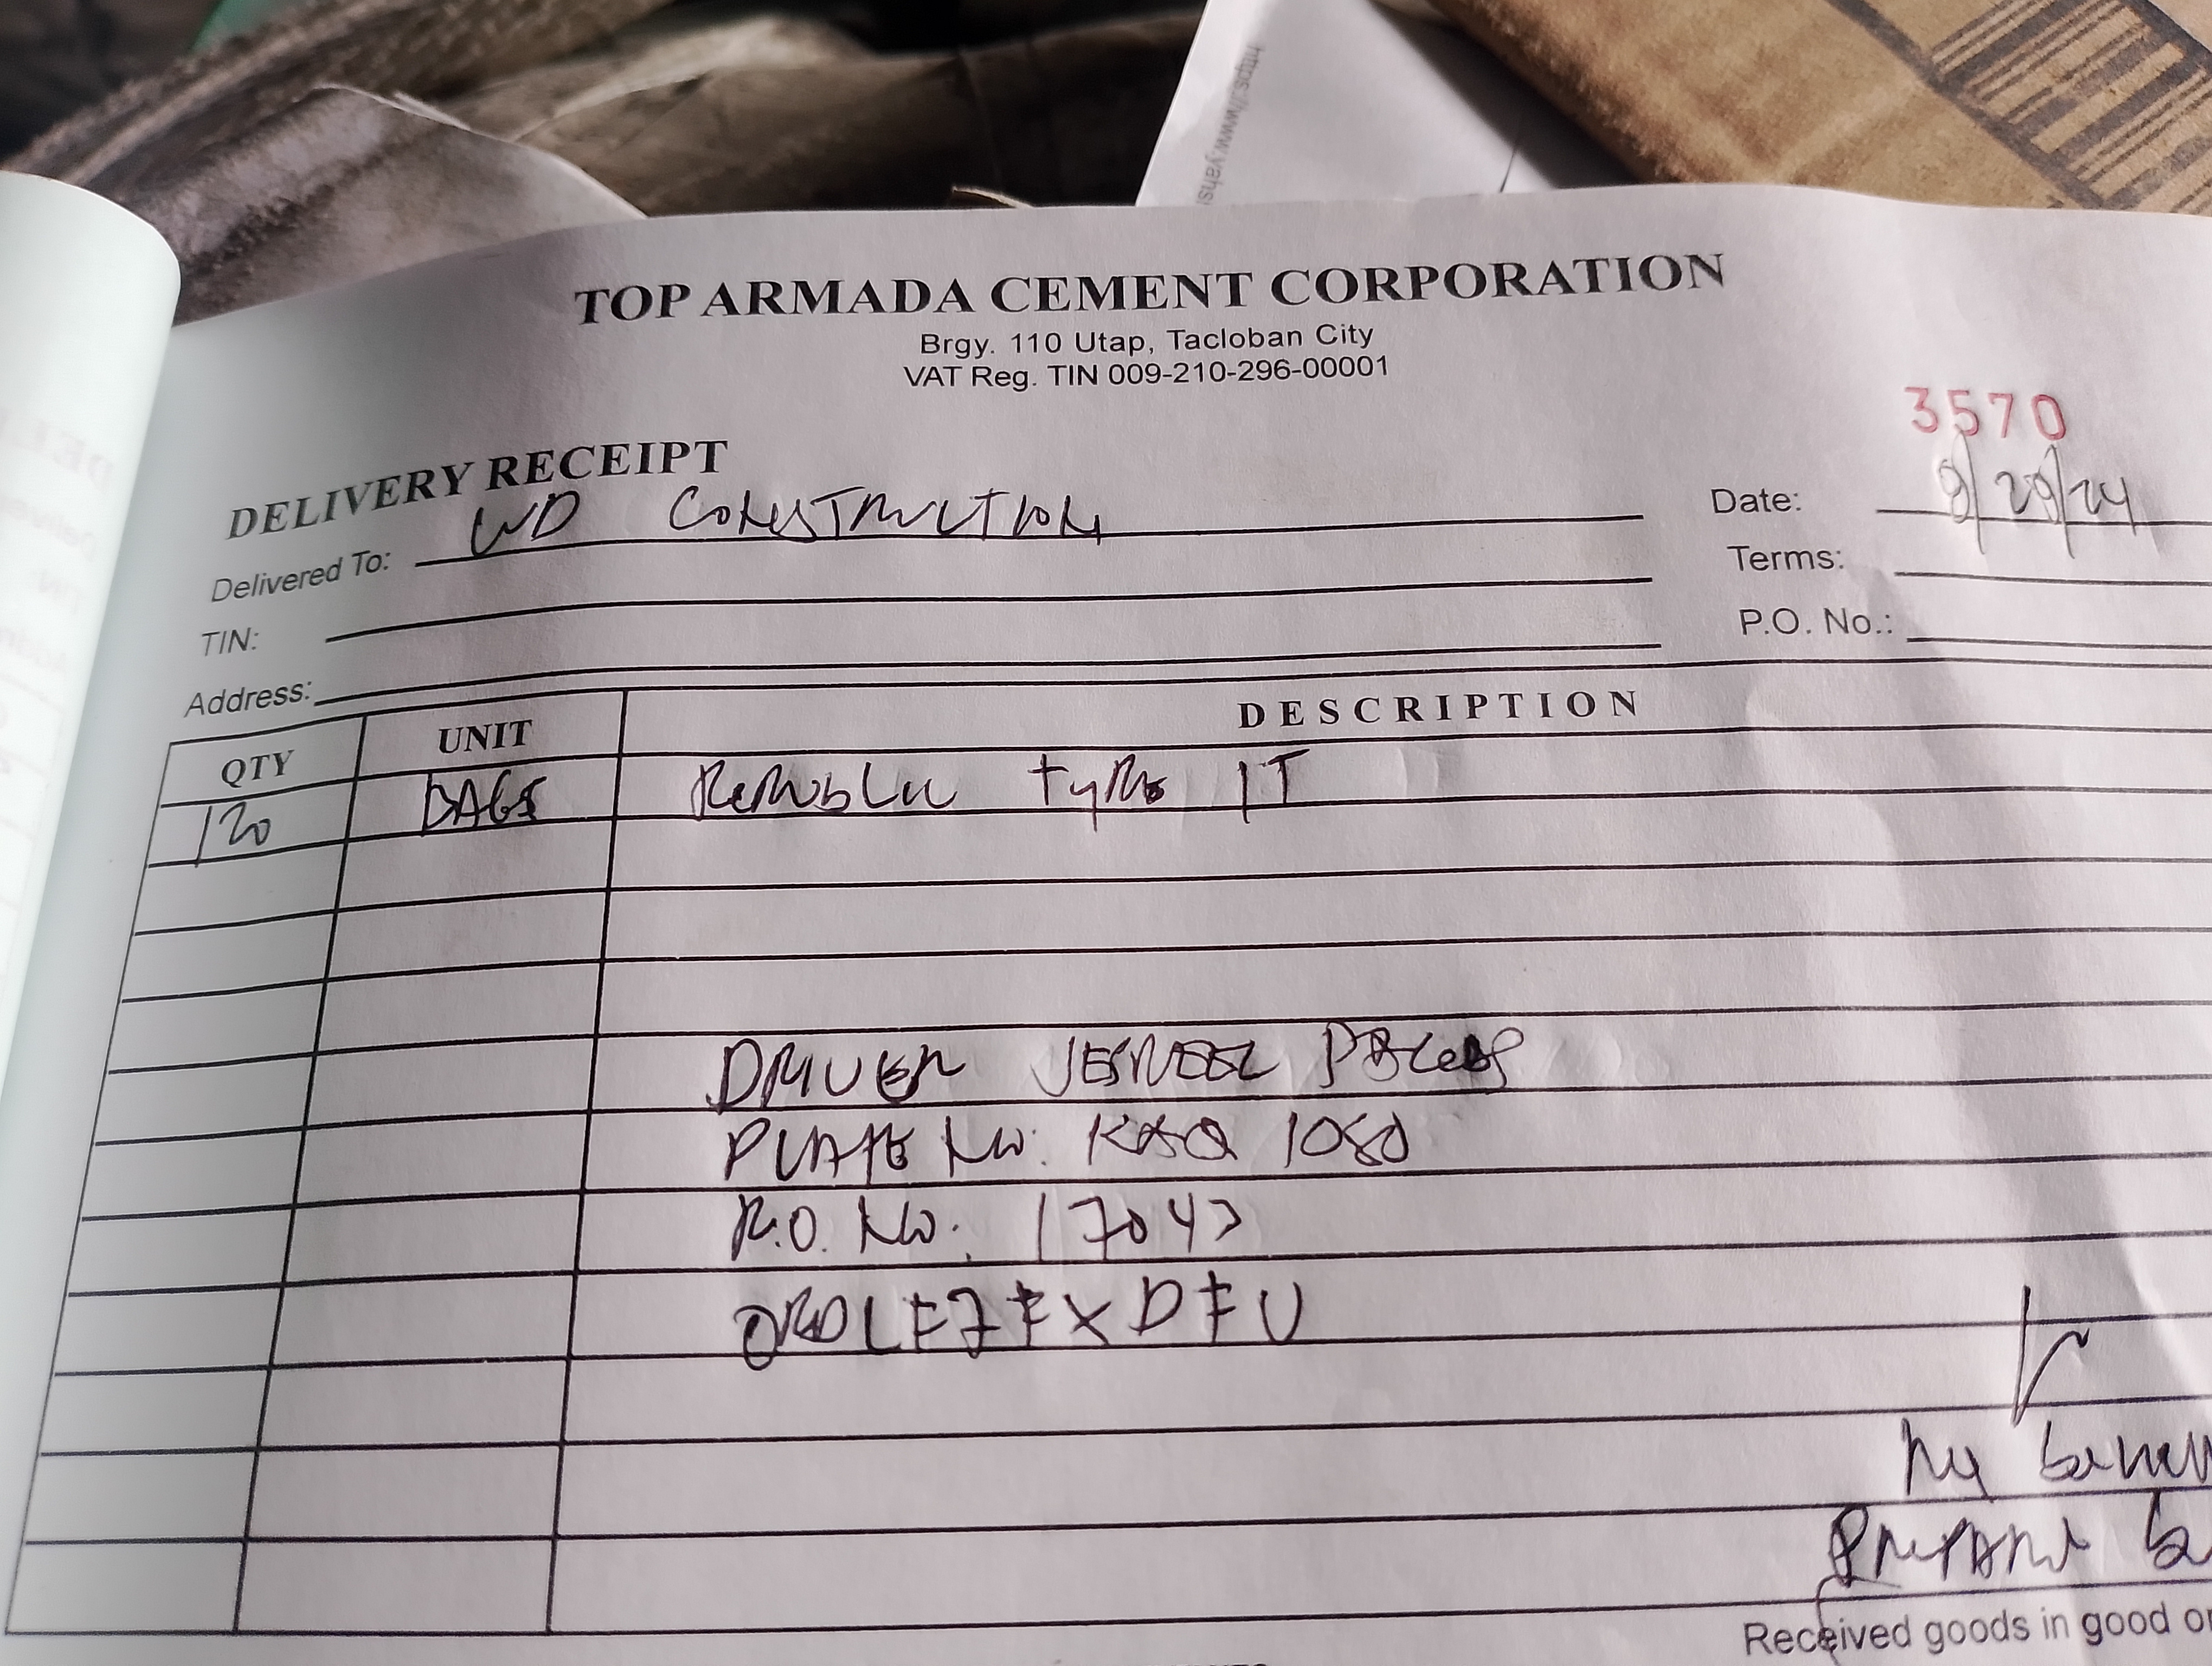 https://www.yahs
TOP ARMADA CEMENT CORPORATION
Brgy. 110 Utap, Tacloban City
VAT Reg. TIN 009-210-296-00001
3570
DELIVERY RECEIPT
Date: 9/29/24
Delivered To: WD CONSTRUCTION
Terms:
TIN:
P.O. No.:
Address:
QTY UNIT DESCRIPTION
120 BAGS Republic Type 1T
DRIVER JESREEL
PLATE No. 1080
R.O. No. 17047
Prepared by
Received goods in good or